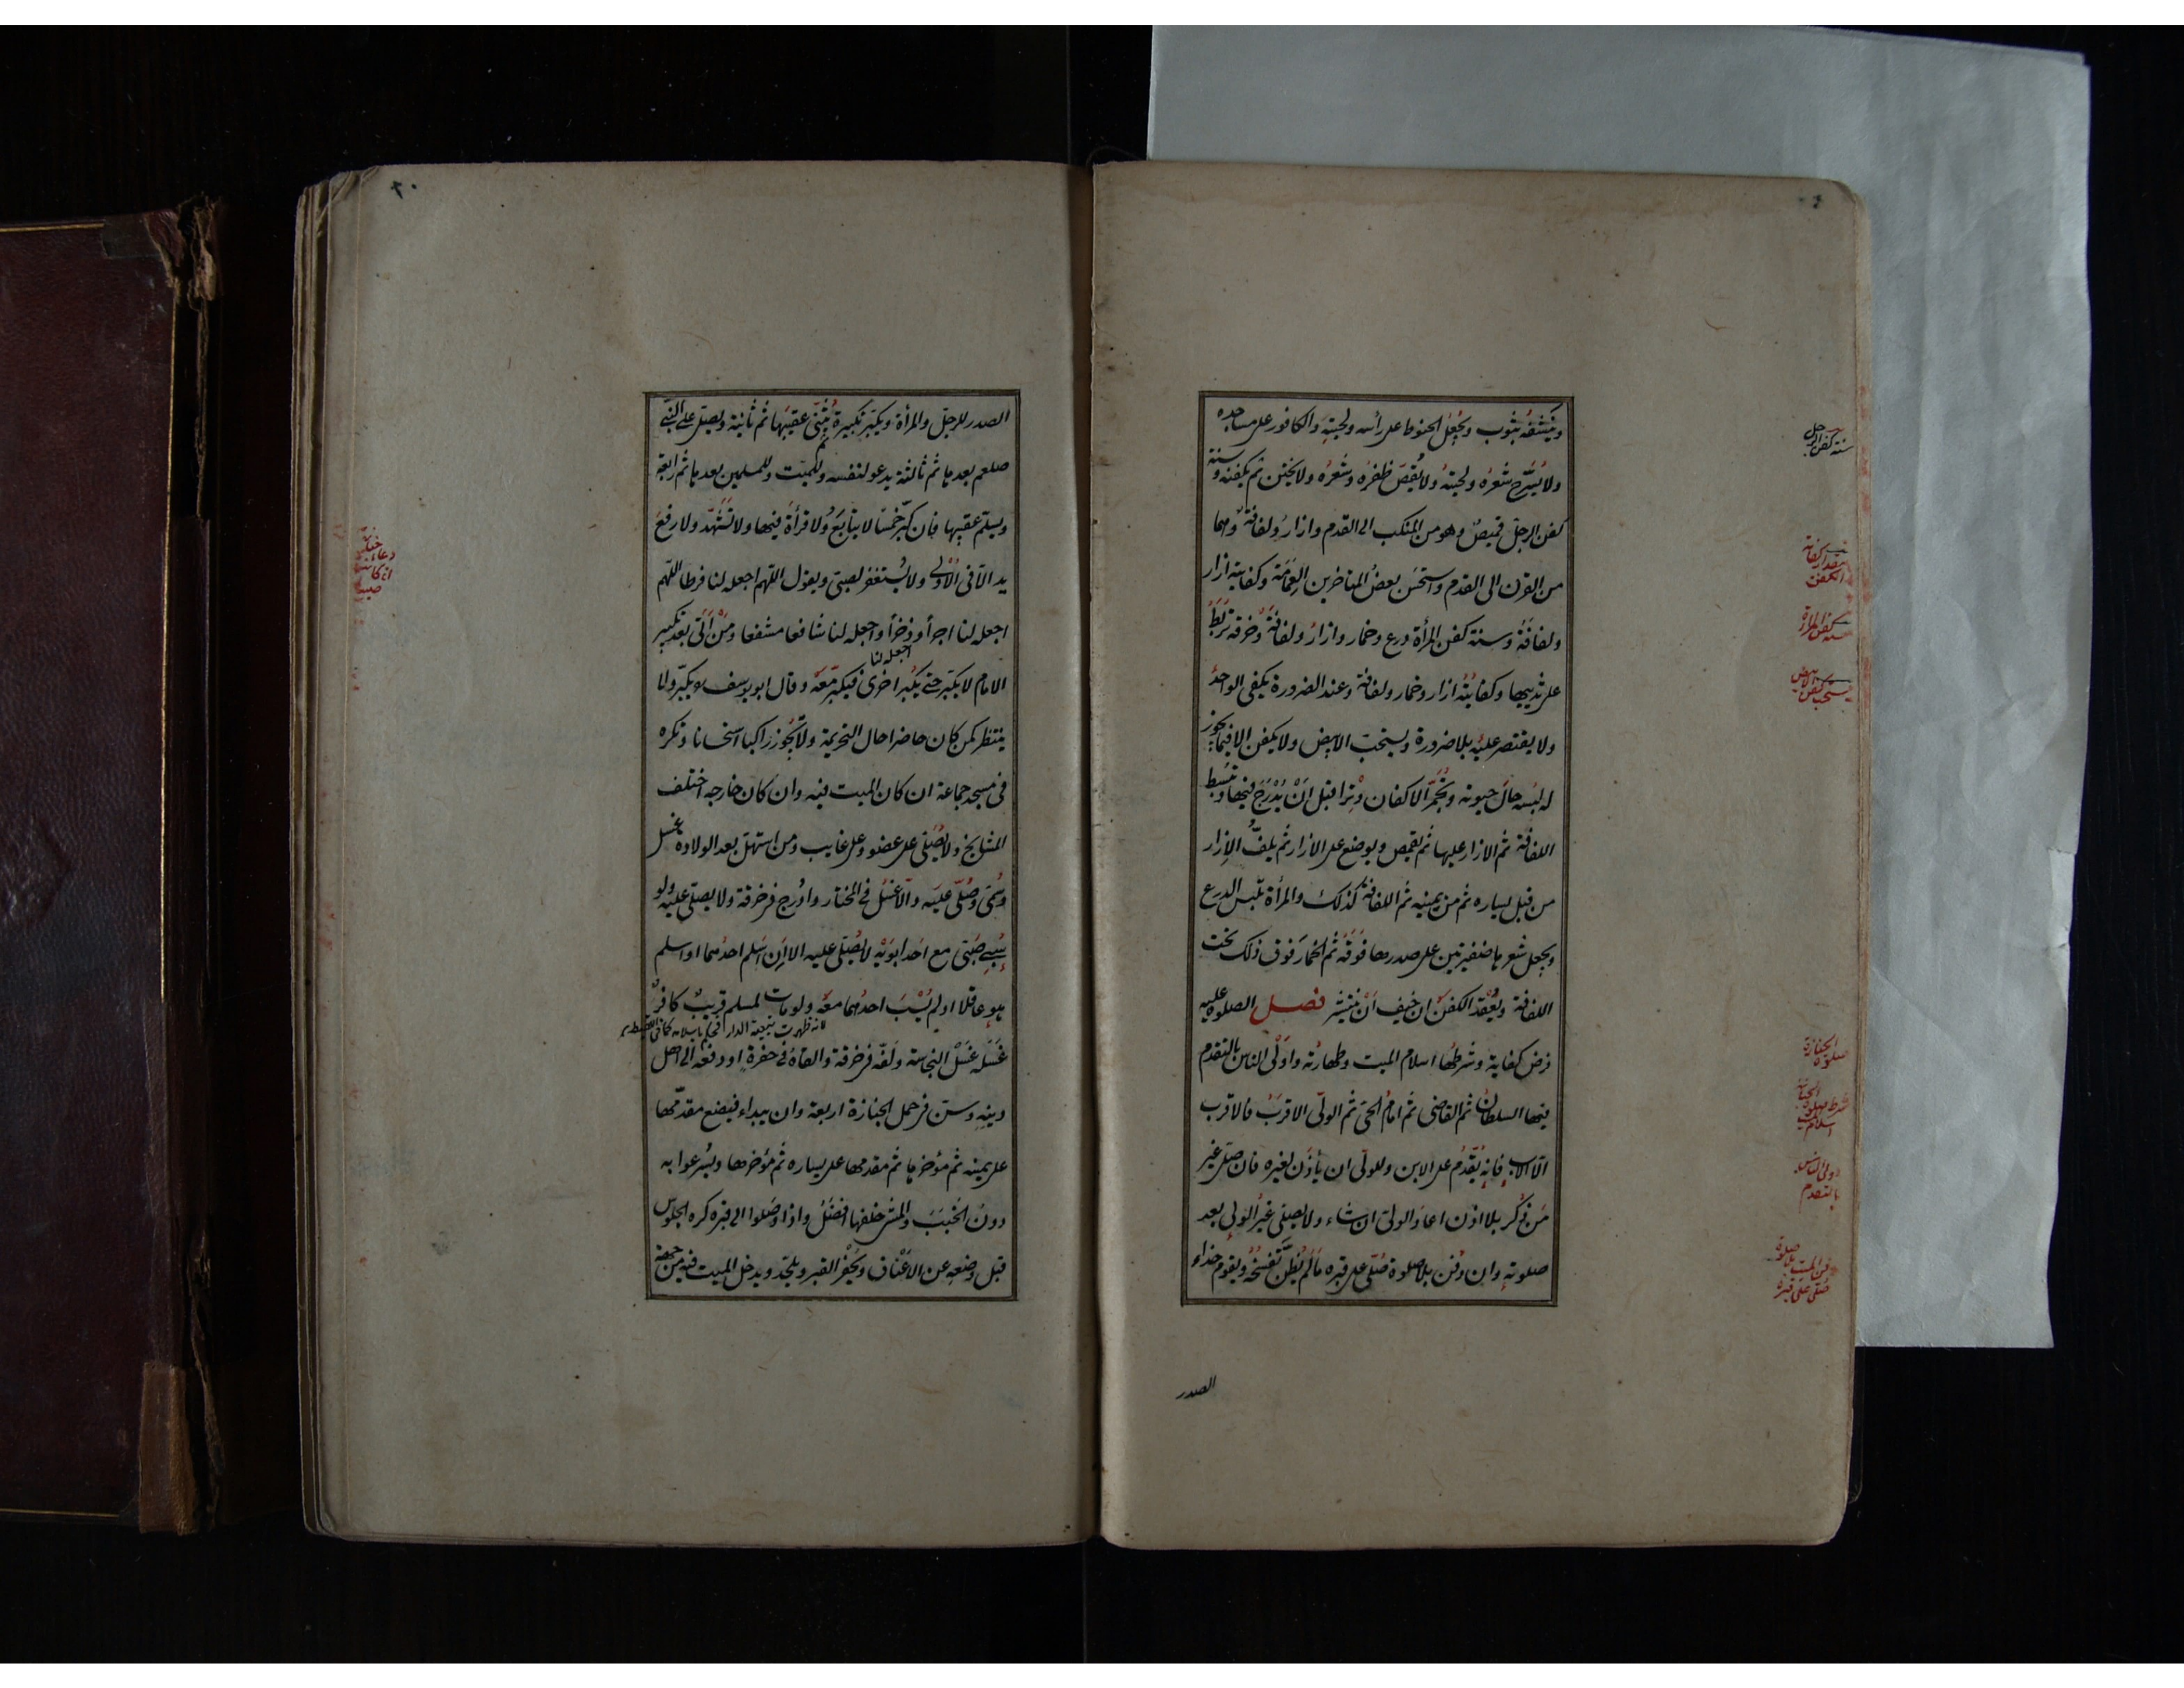 وينشفه بثوب ويجعل الحنوط على رأسه ولحيته والكافور على مساجده
ولا يسرح شعره ولحيته ولا يقص ظفره وشعره ولا يختن ثم يكفنه وسنة
كفن الرجل قميص وهو من المنكب الى القدم وازار ولفافة وهما
من القرن الى القدم واستحسن بعض المتاخرين العمامة وكفايته ازار
ولفافة وسنة كفن المرأة درع وخمار وازار ولفافة وخرقة تربط
على ثدييها وكفايته ازار وخمار ولفافة وعند الضرورة يكفى الواحد
ولا يقتصر عليه بلا ضرورة ويستحب الابيض ولا يكفن الا فيما يجوز
له لبسه حال حيوته وتجمر الاكفان وترا قبل ان يدرج فيها وتبسط
اللفافة ثم الازار عليها ثم يقمص ويوضع على الازار ثم يلف الازار
من قبل يساره ثم من يمينه ثم اللفافة كذلك والمرأة تلبس الدرع
ويجعل شعرها ضفيرتين على صدرها فوقه ثم الخمار فوق ذلك تحت
اللفافة ويعقد الكفن ان خيف ان ينتشر فصل الصلوة عليه
فرض كفاية وشرطها اسلام الميت وطهارته واولى الناس بالتقدم
فيها السلطان ثم القاضى ثم امام الحى ثم الولى الاقرب فالاقرب
الا الاب فانه يقدم على الابن وللولى ان يأذن لغيره فان صلى غير
من ذكر بلا اذن اعاد الولى ان شاء ولا يصلى غير الولى بعد
صلوته وان دفن بلا صلوة صلى على قبره ما لم يظن تفسخه ويقوم حذاء
الصدر
سنة كفن الرجل
كفن المرأة
صلوة الجنازة
اولى الناس
بالتقدم
صلى على قبره
الصدر للرجل والمرأة ويكبر تكبيرة يثنى عقيبها ثم ثانية ويصلى على النبى
صلعم بعدها ثم ثالثة يدعو لنفسه وللميت وللمسلمين بعدها ثم رابعة
ويسلم عقيبها فان كبر خمسا لا يتابع ولا قرأة فيها ولا تشهد ولا رفع
يد الا فى الاولى ولا يستغفر لصبى ويقول اللهم اجعله لنا فرطا اللهم
اجعله لنا اجرا وذخرا واجعله لنا شافعا مشفعا ومن اتى بعد تكبير
اجعله لنا
الامام لا يكبر حتى يكبر اخرى فيكبر معه وقال ابو يوسف يكبر ولا
ينتظر كمن كان حاضرا حال التحريمة ولا تجوز راكبا استحسانا وتكره
فى مسجد جماعة ان كان الميت فيه وان كان خارجه اختلف
المشايخ ولا يصلى على عضو وعلى غايب ومن استهل بعد الولادة غسل
وسمى وصلى عليه والا غسل فى المختار وادرج فى خرقة ولا يصلى عليه ولو
سبى صبى مع احد ابويه لا يصلى عليه الا ان اسلم احدهما او اسلم
هو عاقلا او لم يسب احدهما معه ولو مات لمسلم قريب كافر
غسله غسل النجاسة ولفه فى خرقة والقاه فى حفرة او دفعه الى اهل
دينه وسن فى حمل الجنازة اربعة وان يبداء فيضع مقدمها
على يمينه ثم مؤخرها ثم مقدمها على يساره ثم مؤخرها ويسرعوا به
دون الخبب والمشى خلفها افضل واذا وصلوا الى قبره كره الجلوس
قبل وضعه عن الاعناق ويحفر القبر ويلحد ويدخل الميت فيه من جهة